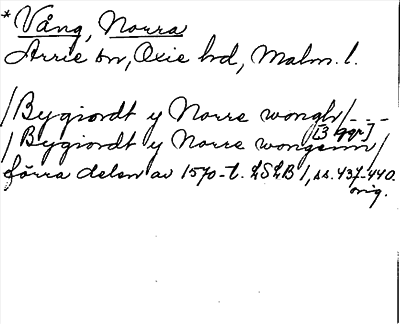 * Vång, Norra
Arrie sn, Oxie hd, Malm. l.
/Bygiordt y Norre wongh/ - - -
[3 ggr]
/Bygiordt y Norre wongenn/
förra delen av 1570-t. LSLB 1, ss. 437-440.
orig.